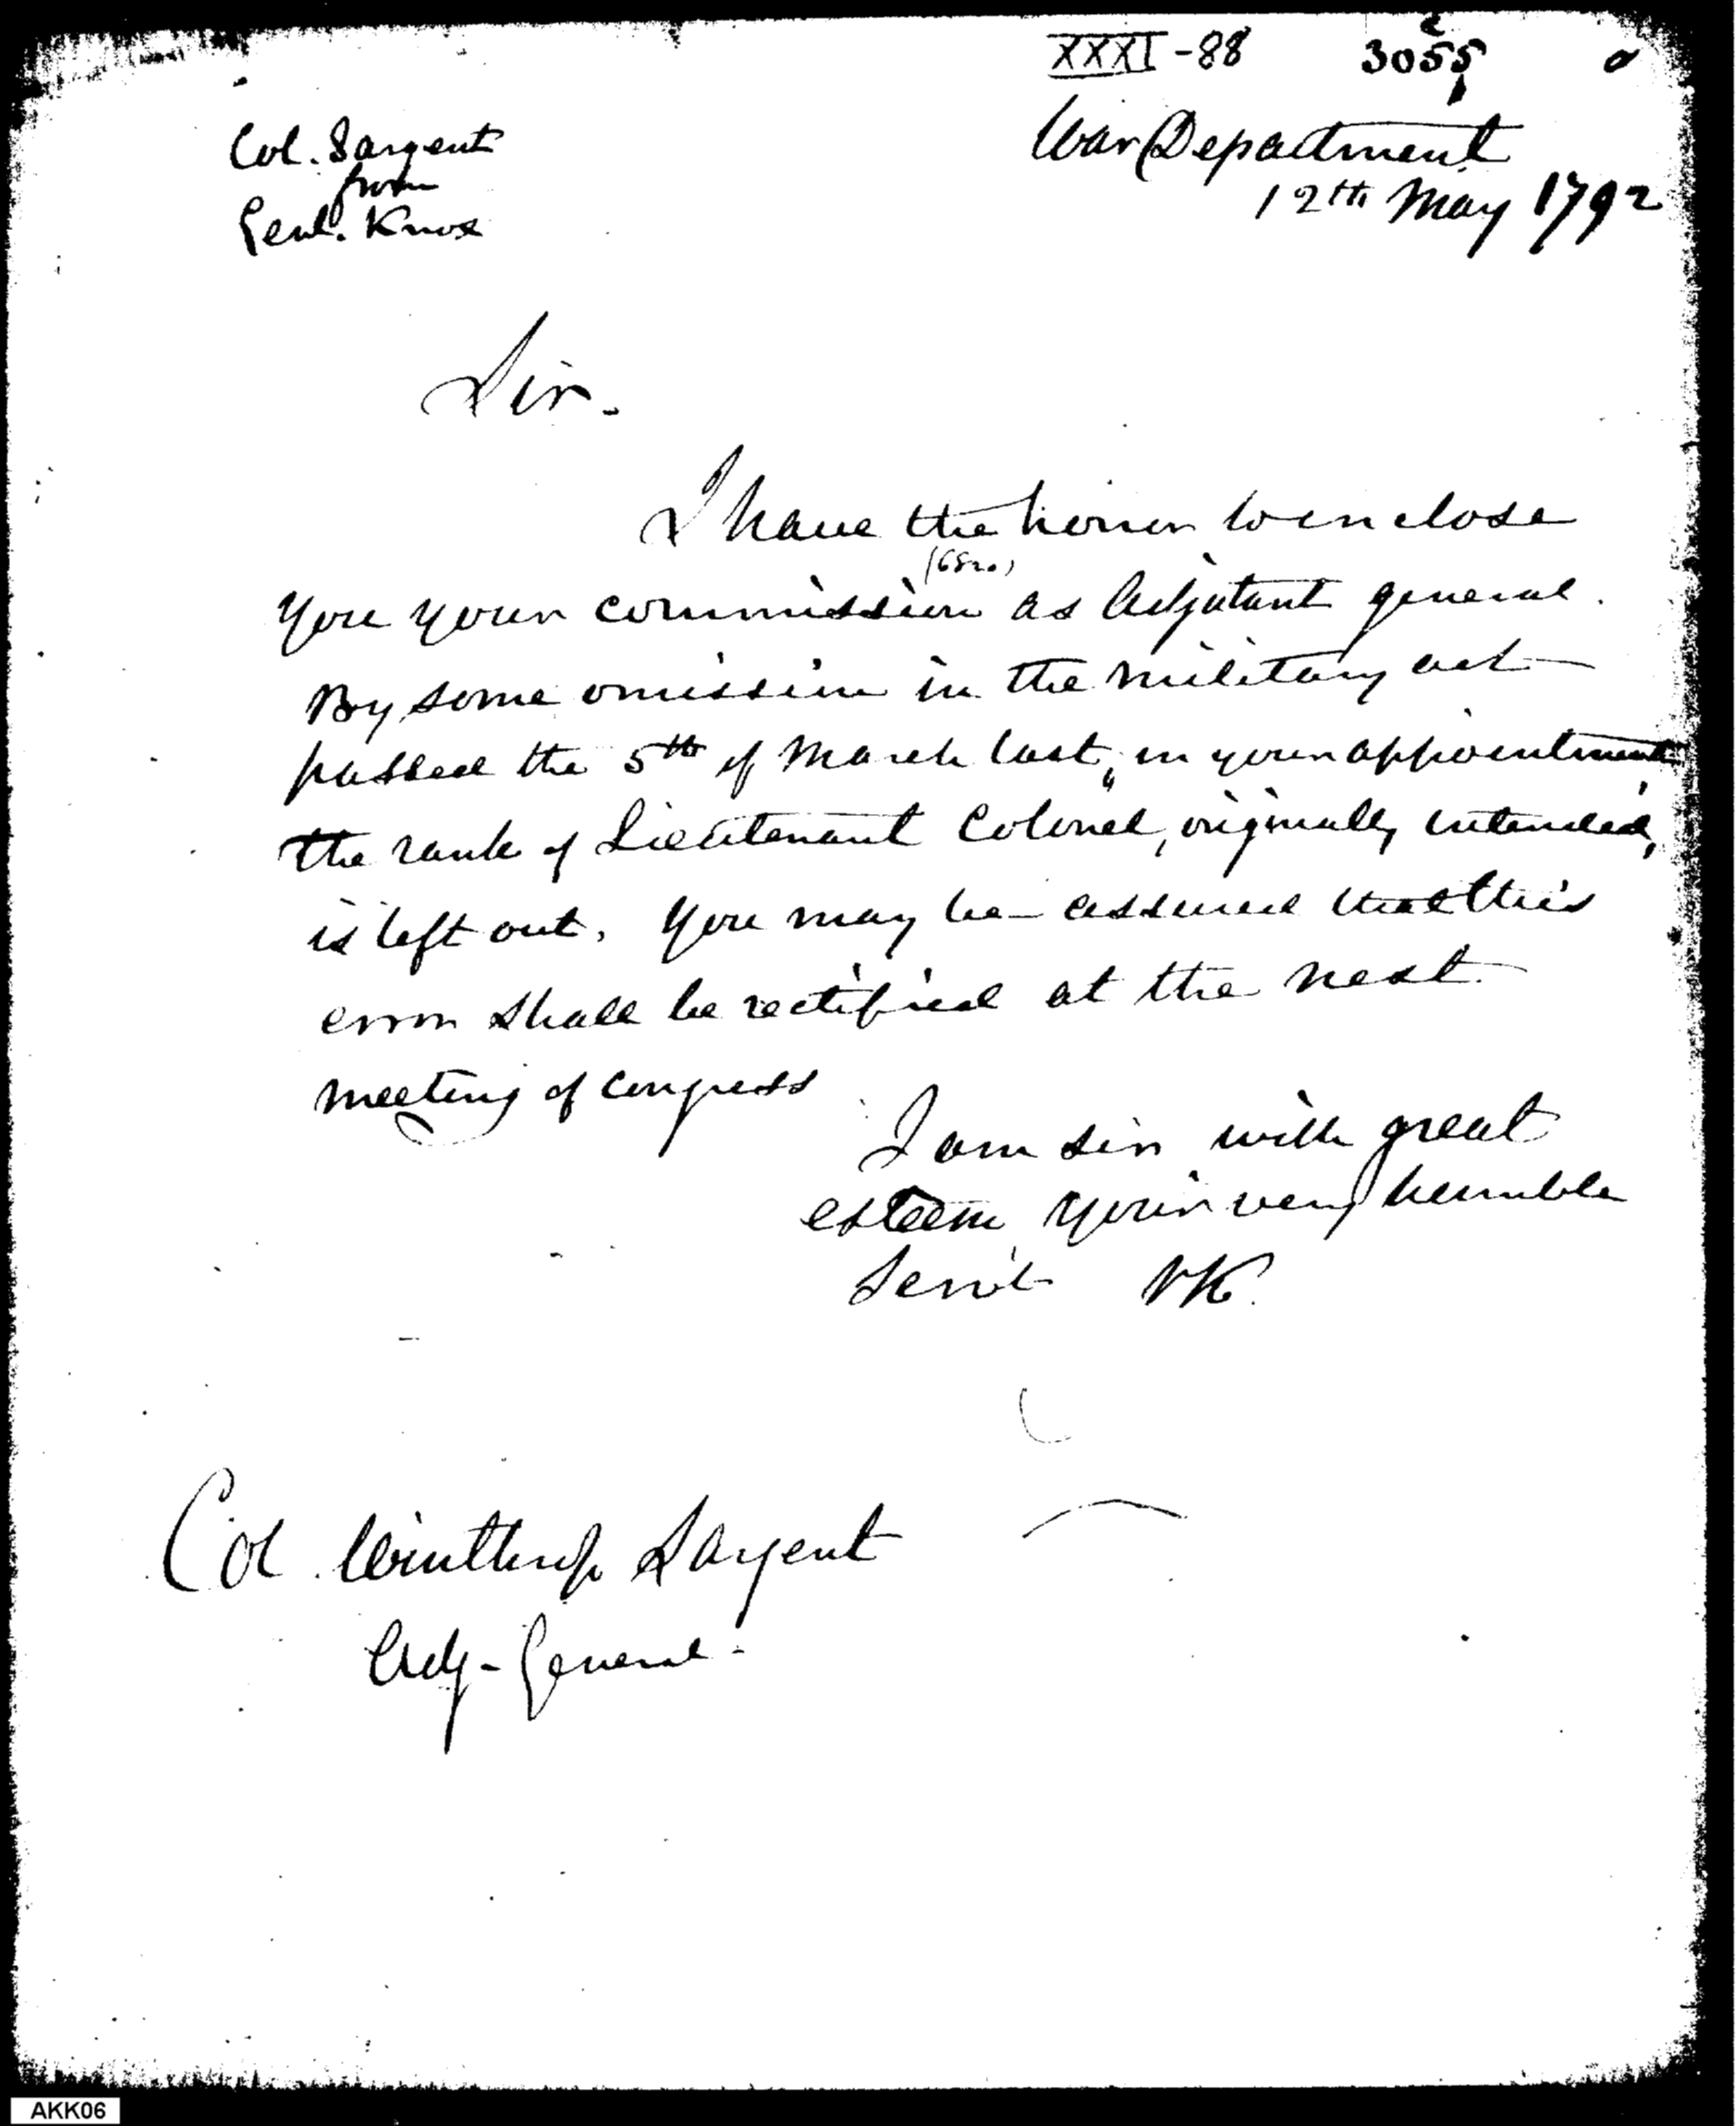 XXXI-88 3055
Col. Sargent
from
Genl. Knox
War Department
12th May 1792
Sir.
I have the honor to enclose
you your commission as Adjutant general.
By some omission in the military act
passed the 5th of March last, in your appointment
the rank of Lieutenant Colonel, originally intended,
is left out. You may be assured that this
error shall be rectified at the next
meeting of Congress
I am sir with great
esteem your very humble
Servt HK.
Col. Winthrop Sargent
Adj-General-
AKK06